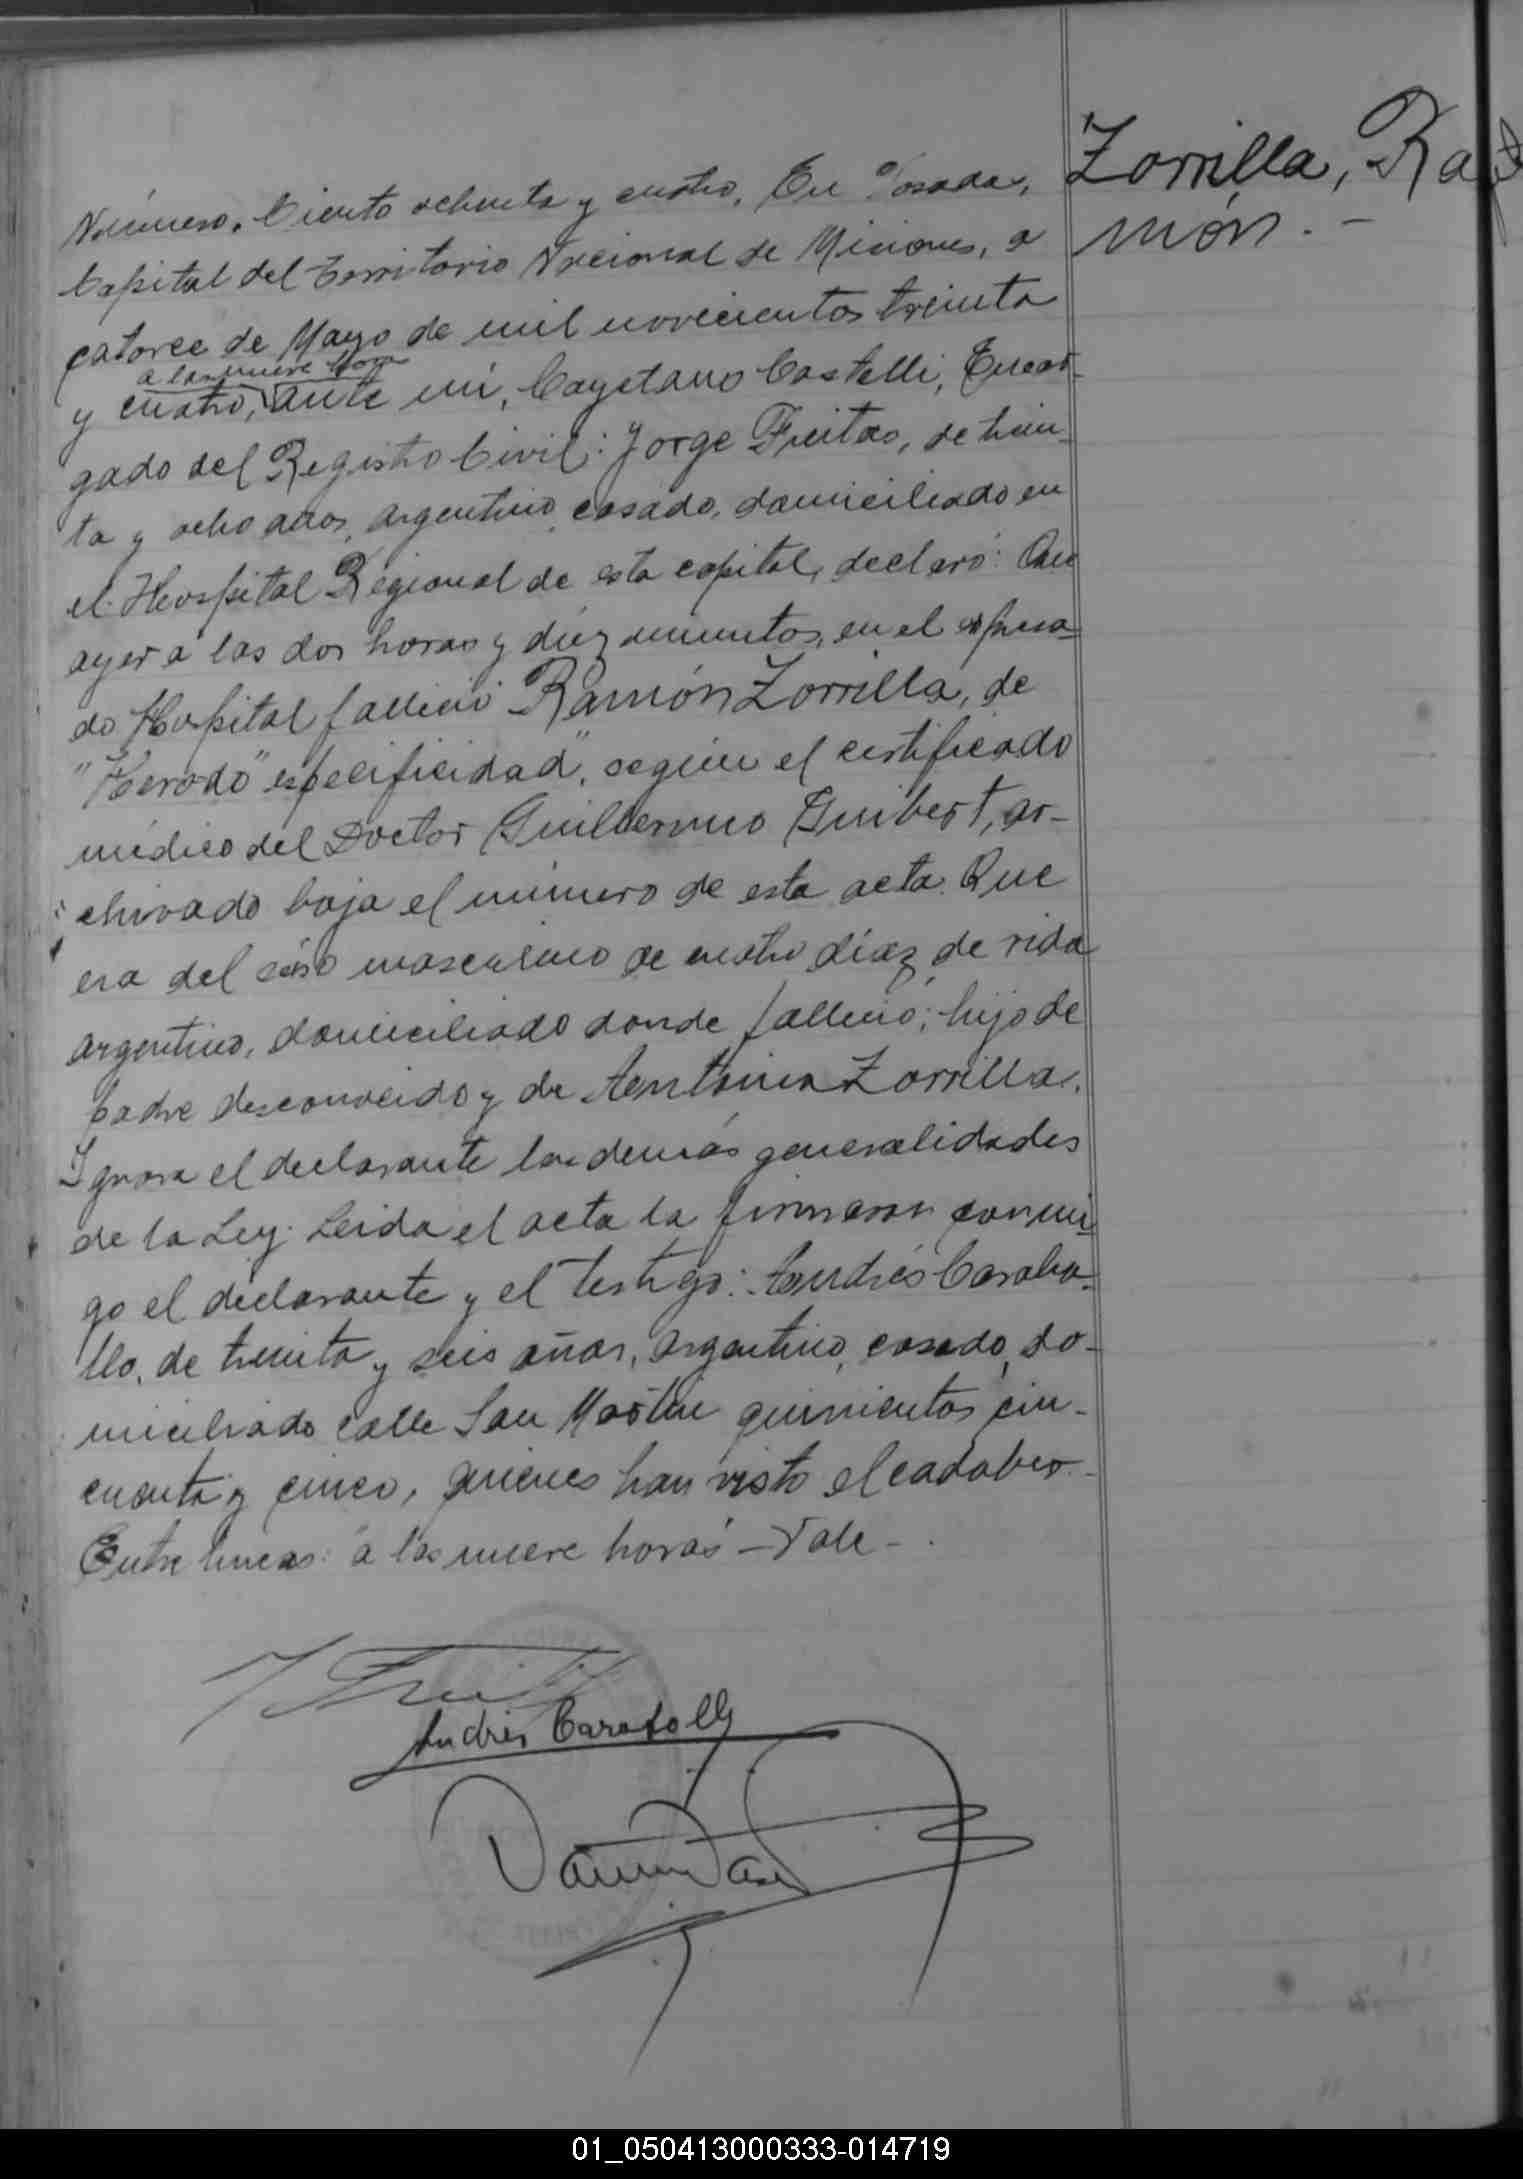 Zorrilla, Ra
món. -
Número. Ciento ochenta y cuatro, En Posadas,
Capital del Territorio Nacional de Misiones, a
catorce de Mayo de mil novecientos treinta
a las nueve horas
y cuatro, ante mí, Cayetano Castelli, Encar-
gado del Registro Civil: Jorge Freitas, de trein-
ta y ocho años, argentino, casado, domiciliado en
el Hospital Regional de esta capital, declaró: Que
ayer a las dos horas y diez minutos, en el expresa-
do Hospital falleció Ramón Zorrilla, de
"Heredo" especificidad", según el certificado
médico del Doctor Guillermo Guibert, ar-
chivado bajo el número de esta acta. Que
era del sexo masculino de cuatro días de vida
argentino, domiciliado donde falleció; hijo de
padre desconocido y de Antonia Zorrilla.
Ignora el declarante las demás generalidades
de la Ley. Leida el acta la firmaron conmi-
go el declarante y el testigo: Andrés Caraba-
llo, de treinta y seis años, argentino, casado, do-
miciliado calle San Martin quinientos cin-
cuenta y cinco, quienes han visto el cadaber.-
Entre lineas: "a las nueve horas" - Vale -.
J Freitas
Andrés Caraballo
01_050413000333-014719